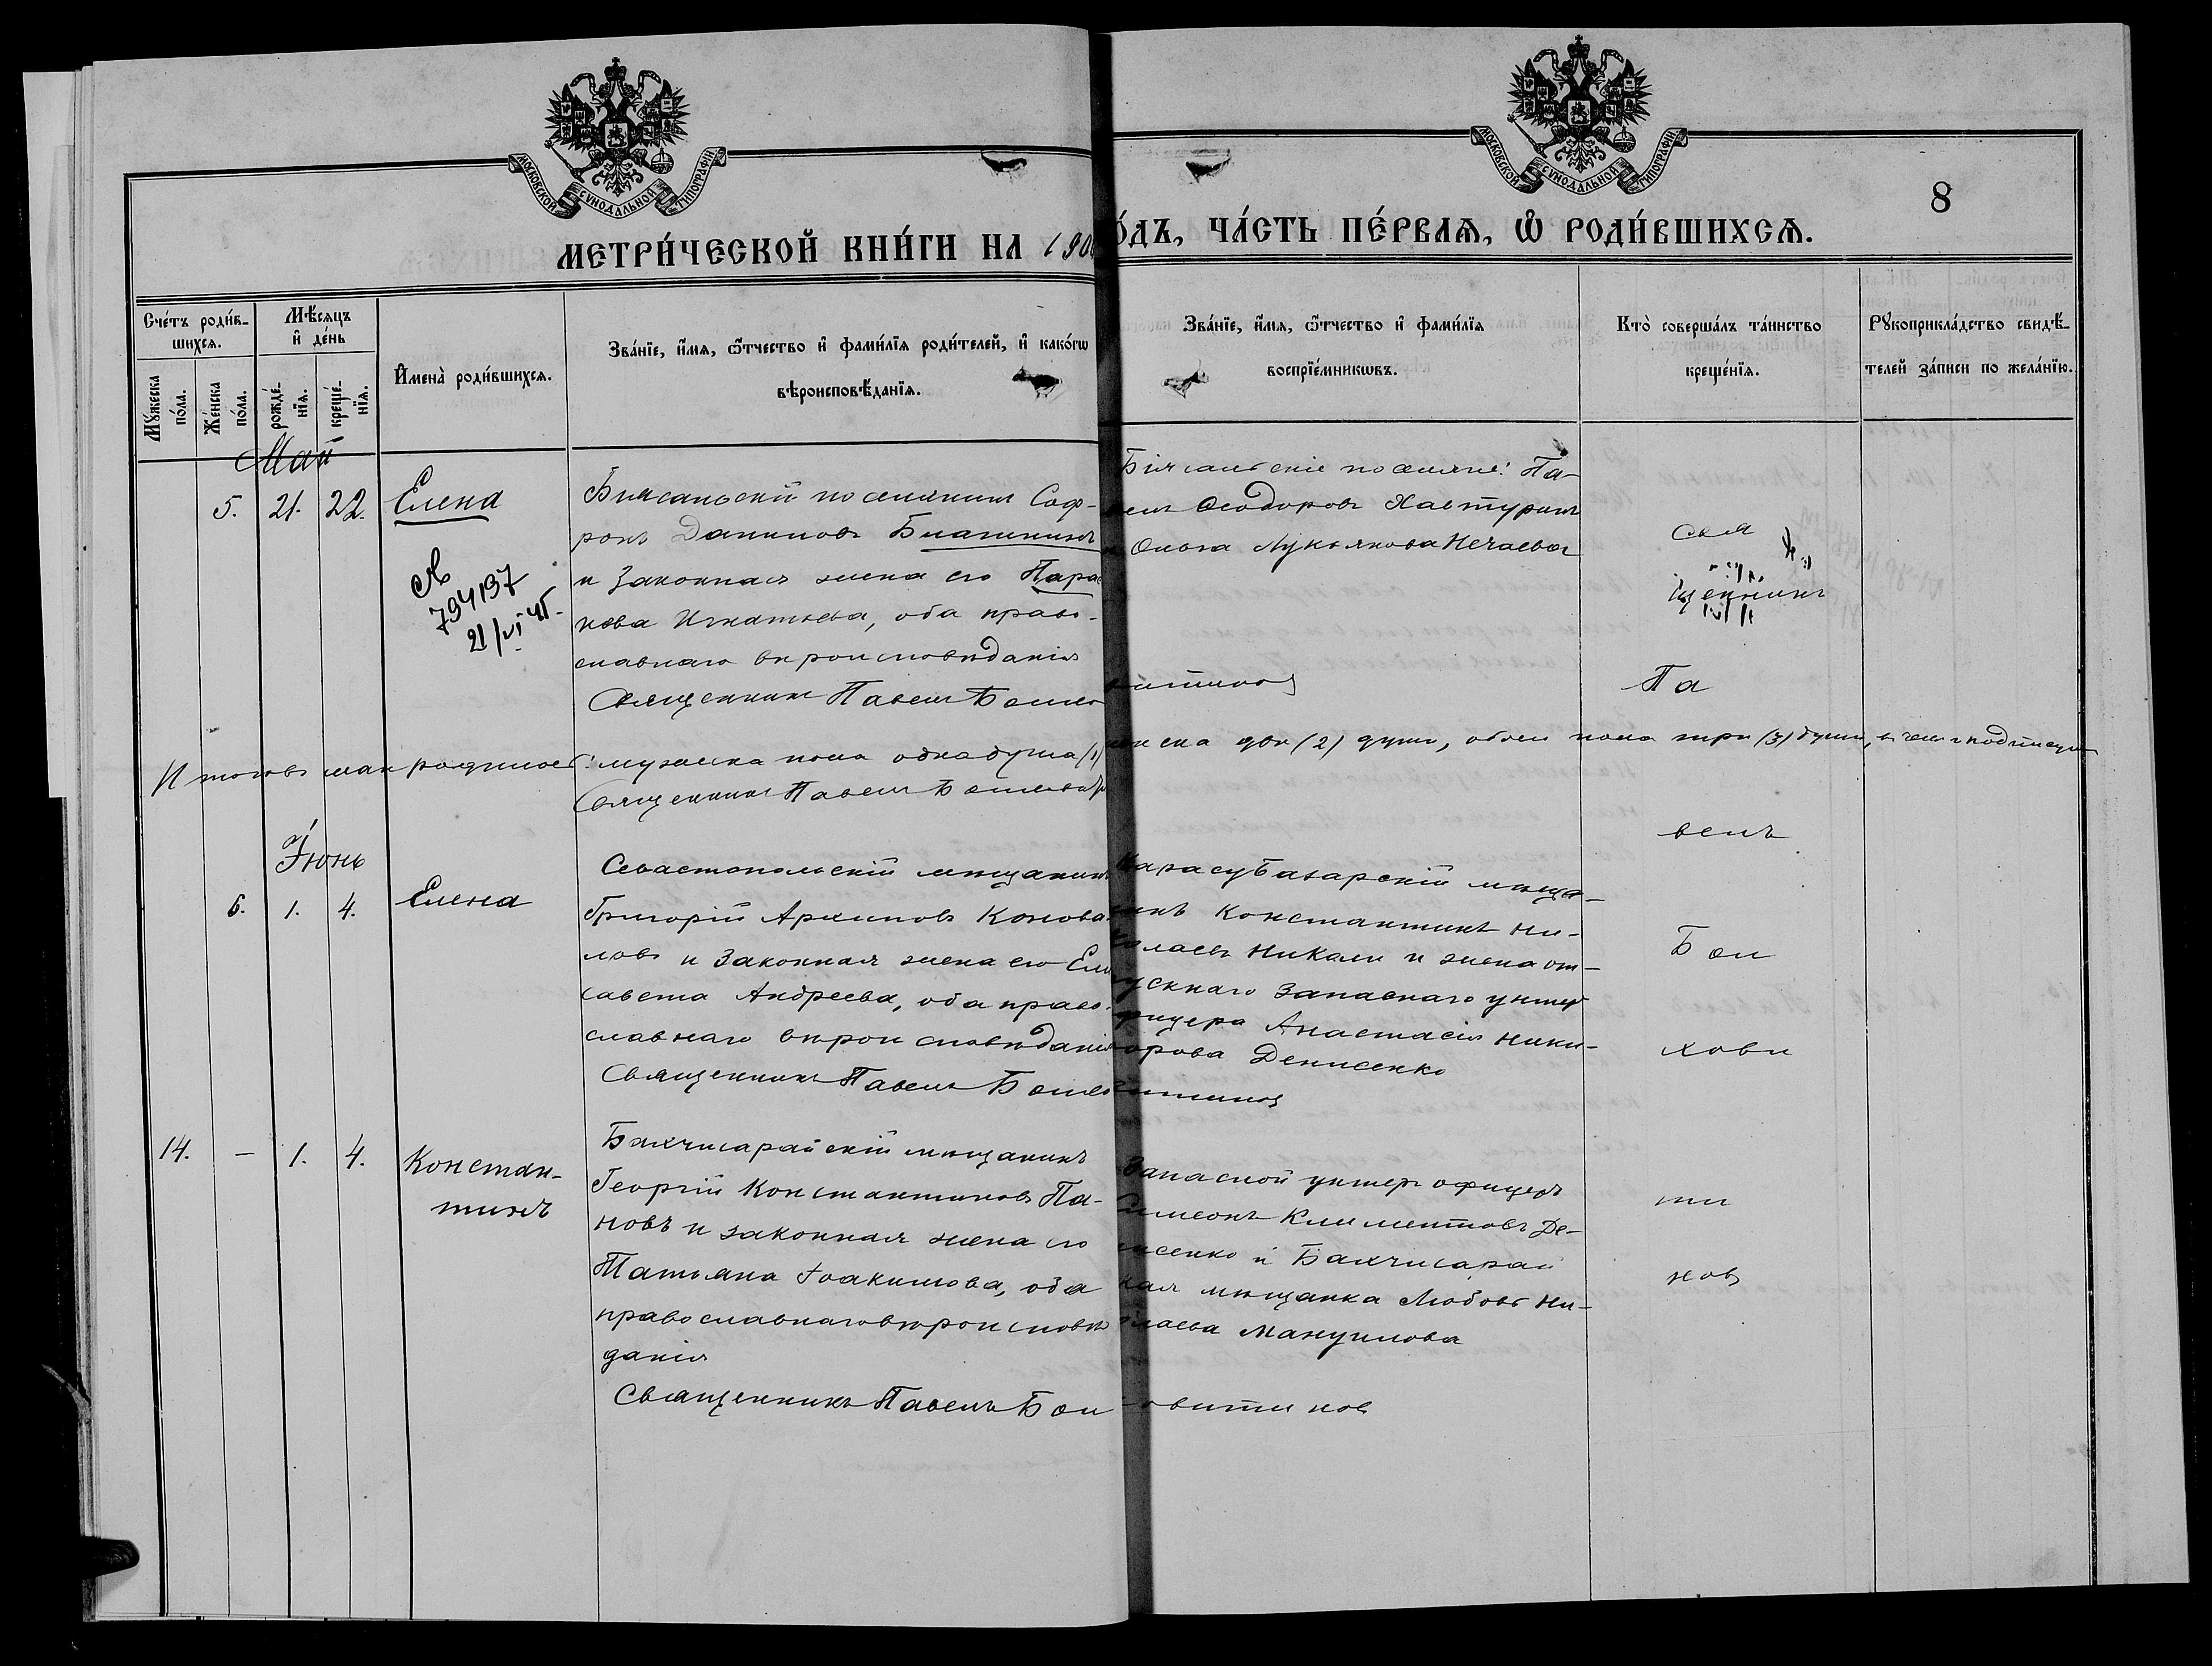 МОСКОВСКОЙ СѴНОДАЛЬНОЙ ТИПОГРАФІИ
МОСКОВСКОЙ СѴНОДАЛЬНОЙ ТИПОГРАФІИ
8
МЕТРИ́ЧЕСКОЙ КНИ́ГИ НА 190
О́ДЪ, ЧА́СТЬ ПЕ́РВАѦ, Ѡ РОДИ́ВШИХСѦ.
Сче́тъ роди́в-
шихсѧ.
Мѣ́сѧцъ
и҆ де́нь
Мꙋ́жеска
по́ла.
Же́нска
по́ла.
рожде́-
нїѧ.
креще́-
нїѧ.
И҆мена̀ роди́вшихсѧ.
Зва́нїе, и҆́мѧ, ѻ҆́тчество и҆ фами́лїѧ роди́телей, и҆ како́гѡ
вѣроисповѣ́данїѧ.
Зва́нїе, и҆́мѧ, ѻ҆́тчество и҆ фами́лїѧ
воспрїе́мникѡвъ.
Кто̀ соверша́лъ та́инство
креще́нїѧ.
Рꙋкоприкла́дство свидѣ́-
телей за́писи по жела́нїю.
Май
5. 21. 22. Елена
Біясальскій поселянинъ Соф-
ронъ Даниловъ
и законная жена его Парас
кева Игнатьева, оба право-
славнаго вѣроисповѣданія
Священникъ Павелъ Боголю
794197
21/VI
Біясальскіе поселяне: Па-
велъ Ѳеодоровъ Хавтуринъ
и Ольга Лукьянова Нечаева
Свя
щенникъ
Па
Итого въ маѣ родилось: мужеска пола одна душа (1)
женска двѣ (2) души, обоего пола три (3) души, въ чемъ и подписуемся
Священникъ Павелъ
велъ
Іюнь
6. 1. 4. Елена
Севастопольскій мѣщанинъ
Григорій Архиповъ Конова
ловъ и законная жена его Ели
савета Андреева, оба право-
славнаго вѣроисповѣданія
Священникъ Павелъ
Карасубазарскій мѣща-
нинъ Константинъ Ни-
колаевъ Никали и жена от-
пускнаго запаснаго унтеръ
офицера Анастасія Ники-
форова Денисенко
14. - 1. 4. Констан-
тинъ
Бахчисарайскій мѣщанинъ
Георгій Константиновъ Па-
новъ и законная жена его
Татьяна Іоакимова, оба
православнаго вѣроисповѣ
данія
Священникъ Павелъ
Запасной унтеръ офицеръ
Симеонъ Климентовъ Де-
нисенко и Бахчисарай
кая мѣщанка Любовь Ни-
колаева Мануилова
новъ